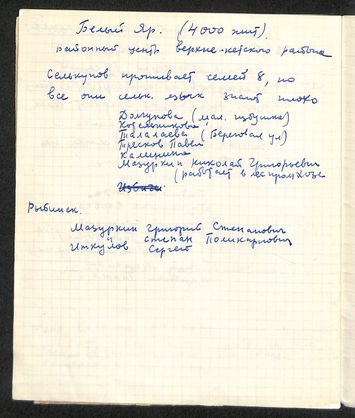 Белый Яр. (4000 жит).
районный центр Верхне-кетского района
Селькупов проживает семей 8, но
все они сельк. язык знают плохо
(мал. избушка)
Котельникова
Талалаева (Береговая ул)
Тресков Павел
Калинина
Мазуркин Николай Григорьевич
(работает в леспромхозе
Рыбинск.
Мазуркин Григорий Степанович
Степан Поликарпович
Сергей